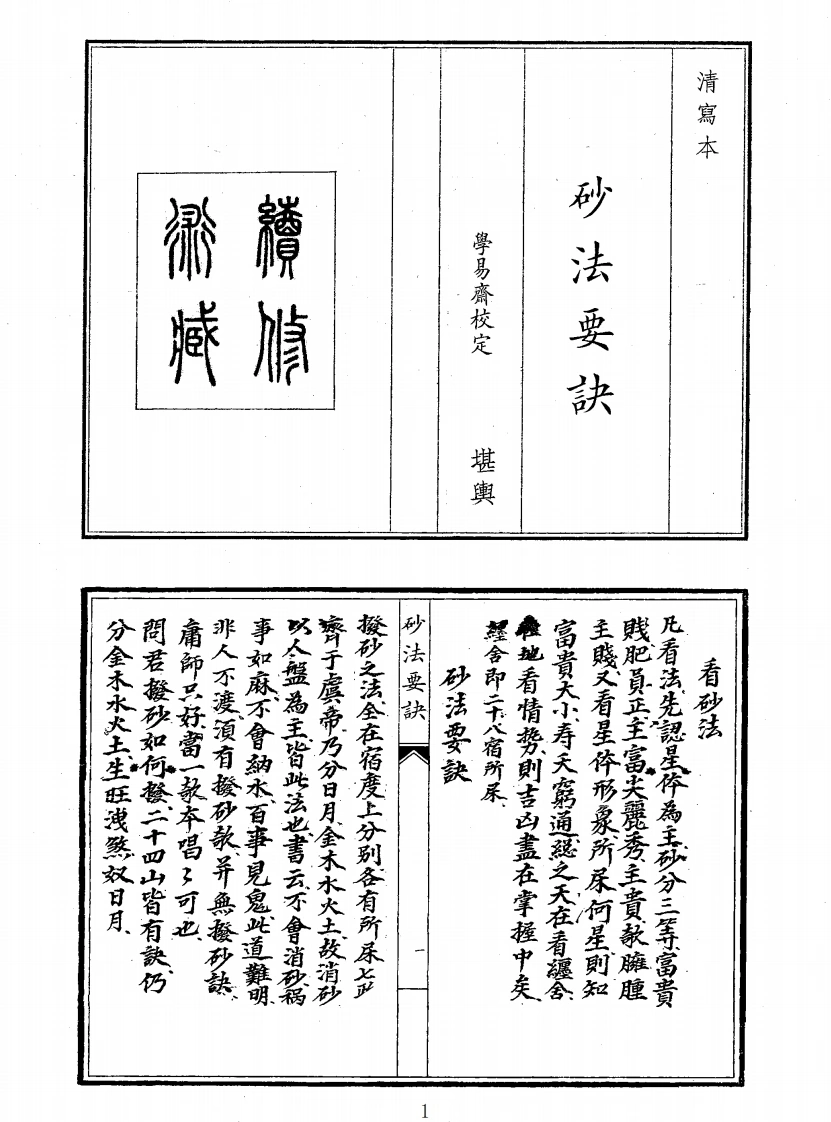 清寫本
砂法要訣
學易齋校定　堪輿
續修
術藏
看砂法
凡看法先認星体為主砂分三等富貴
賎肥員正主富尖麗秀主貴欹臃腫
主賤又看星体形象所屎何星則知
富貴大小寿夭窮通総之天在看纏舍
地看情势則吉凶盡在掌握中矣
經舍即二十八宿所屎
砂法要訣
砂法要訣
一
撥砂之法全在宿度上分別各有所屎七政
齊于虞帝乃分日月金木水火土故消砂
以人盤為主皆此法也書云不會消砂禍
事如麻不會納水百事見鬼此道難明
非人不渡須有撥砂歌并無撥砂訣
庸師只好當一歌本唱〻可也
問君撥砂如何撥二十四山皆有訣仍
分金木水火土生旺洩煞奴日月
1